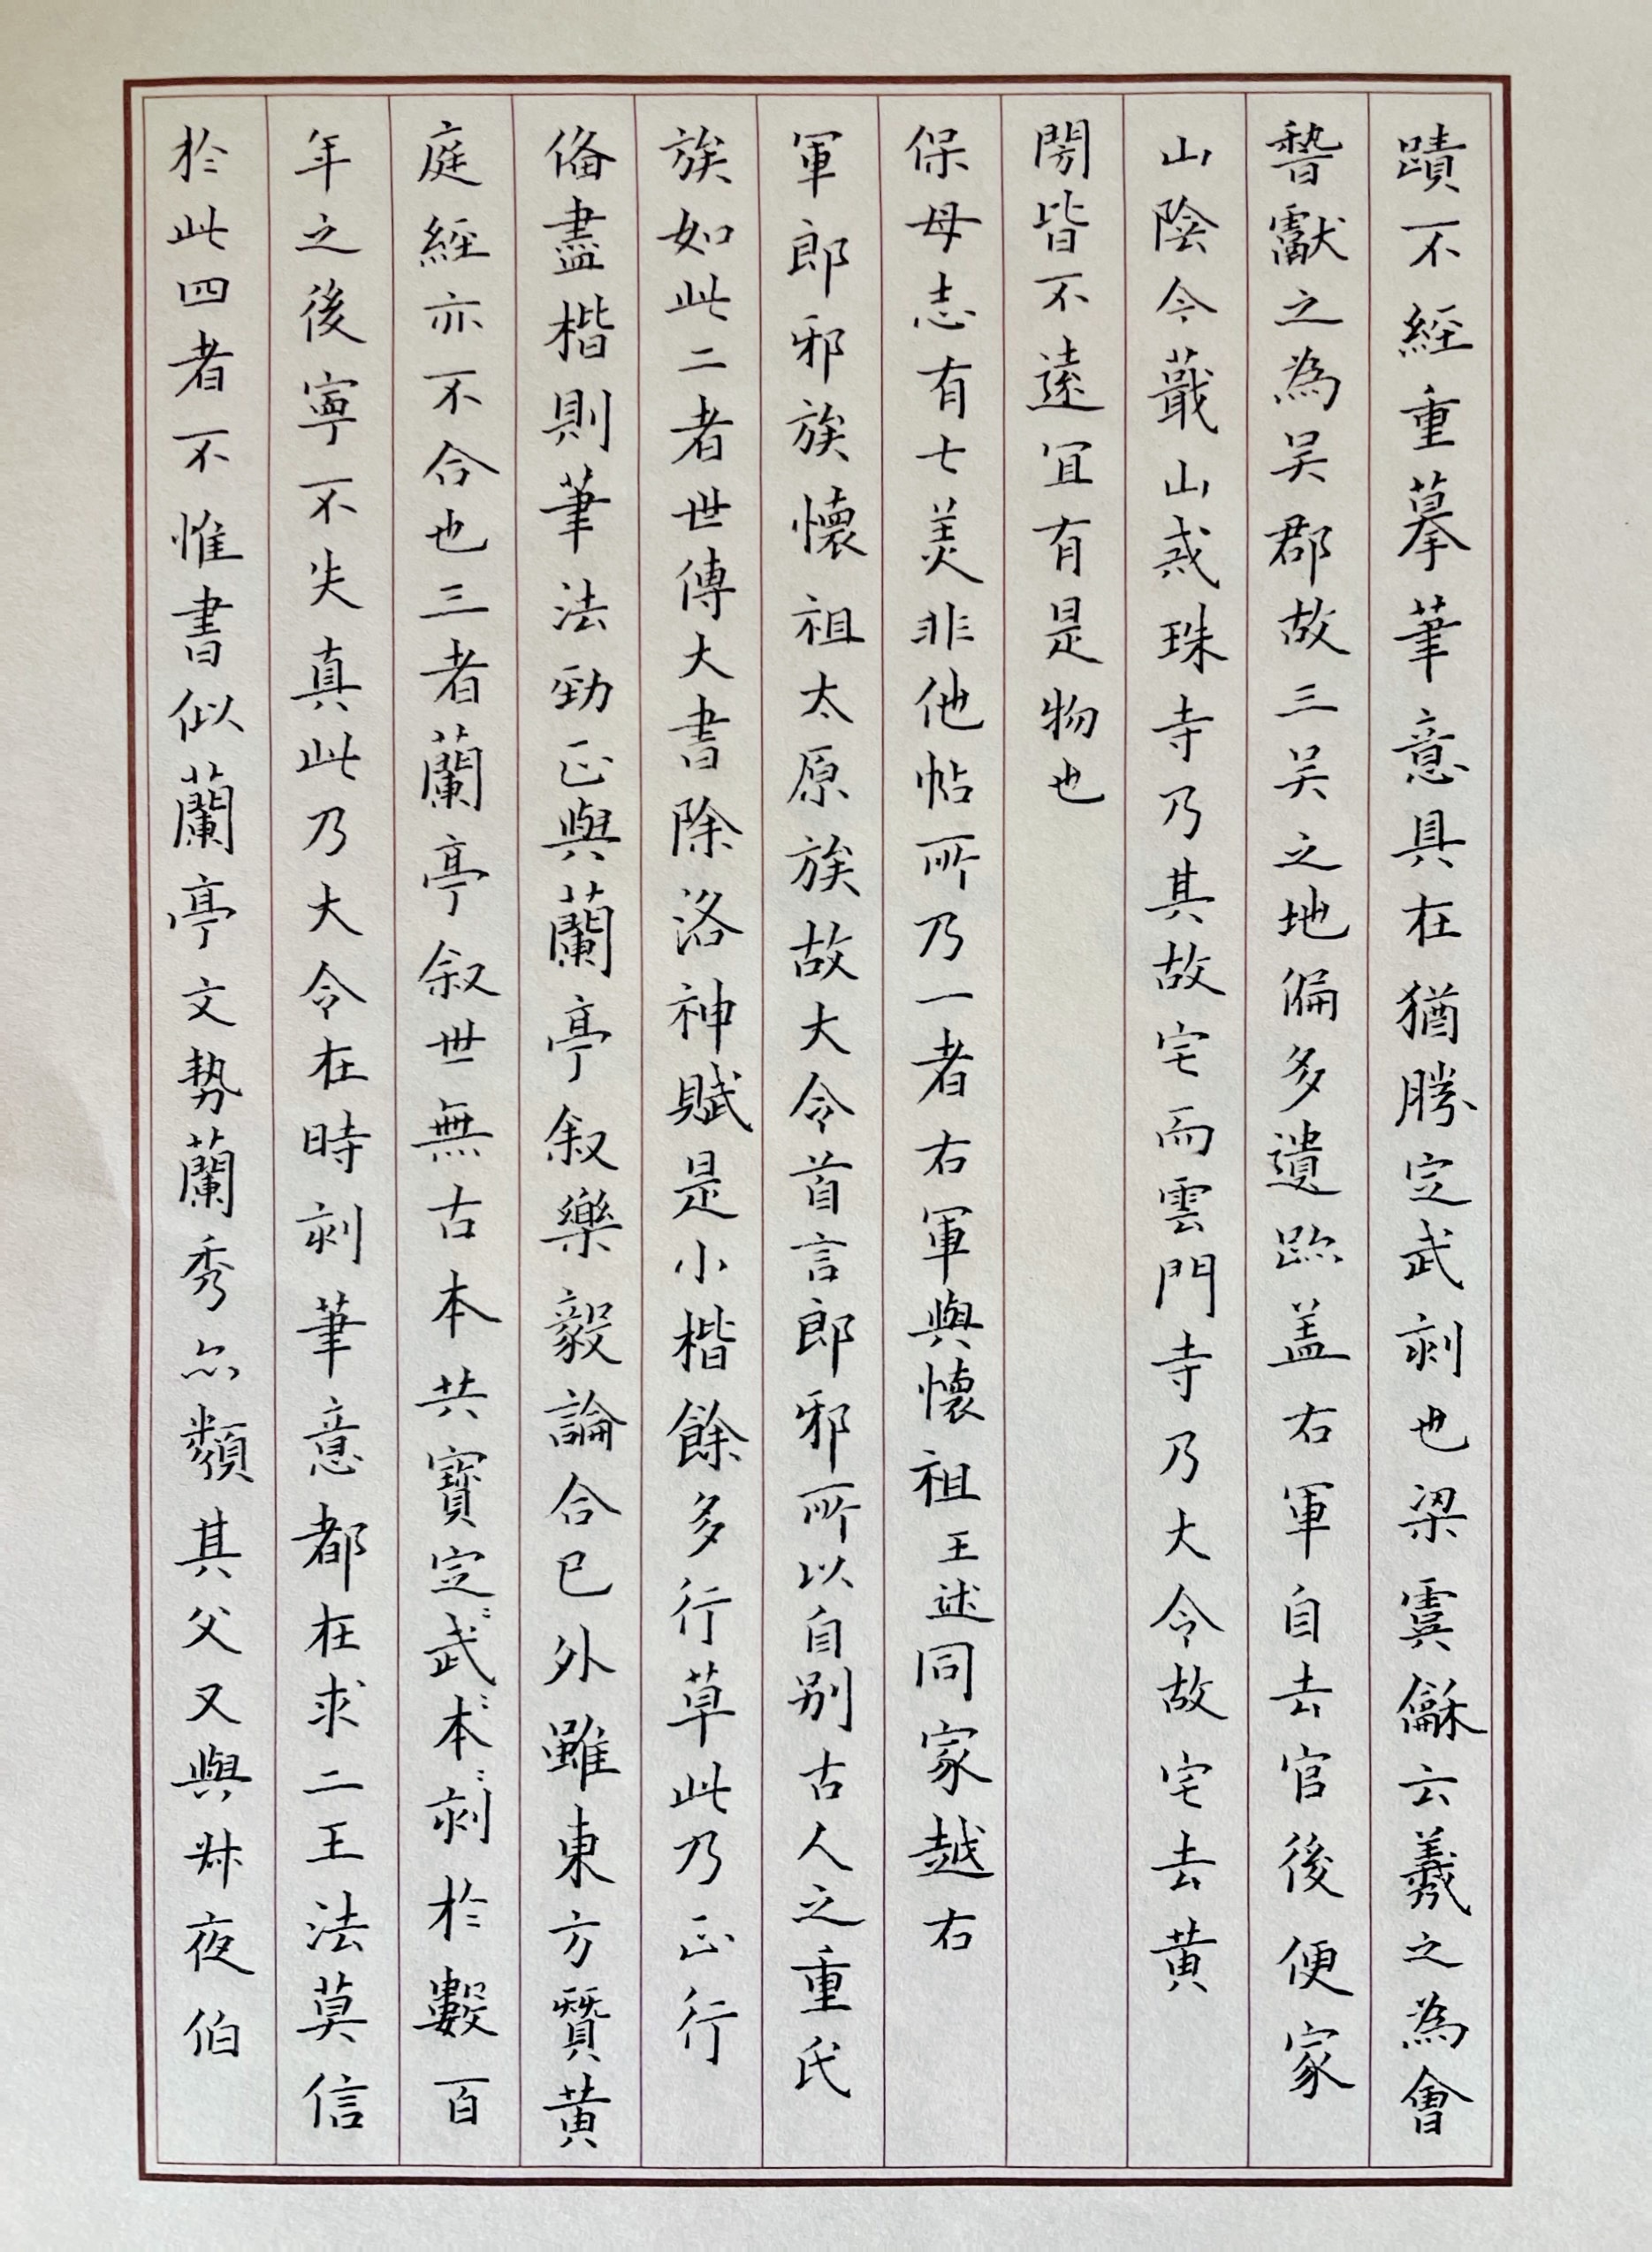 蹟不經重摹筆意具在猶勝定武刻也梁虞龢云羲之為會
嵇獻之為吴郡故三吴之地偏多遺跡盖右軍自去官後便家
山陰今蕺山戒珠寺乃其故宅而雲門寺乃大令故宅去黄
閍皆不遠宜有是物也
保母志有七美非他帖所乃一者右軍與懷祖王述同家越右
軍郎邪族懷祖太原族故大令首言郎邪所以自别古人之重氏
族如此二者世傳大書除洛神賦是小楷餘多行草此乃正行
俻盡楷則筆法勁正與蘭亭叙樂毅論合已外雖東方贊黄
庭經亦不合也三者蘭亭叙世無古本共寶定武本刻於數百
年之後寧不失真此乃大令在時刻筆意都在求二王法莫信
於此四者不惟書似蘭亭文勢蘭秀亦類其父又與叔夜伯